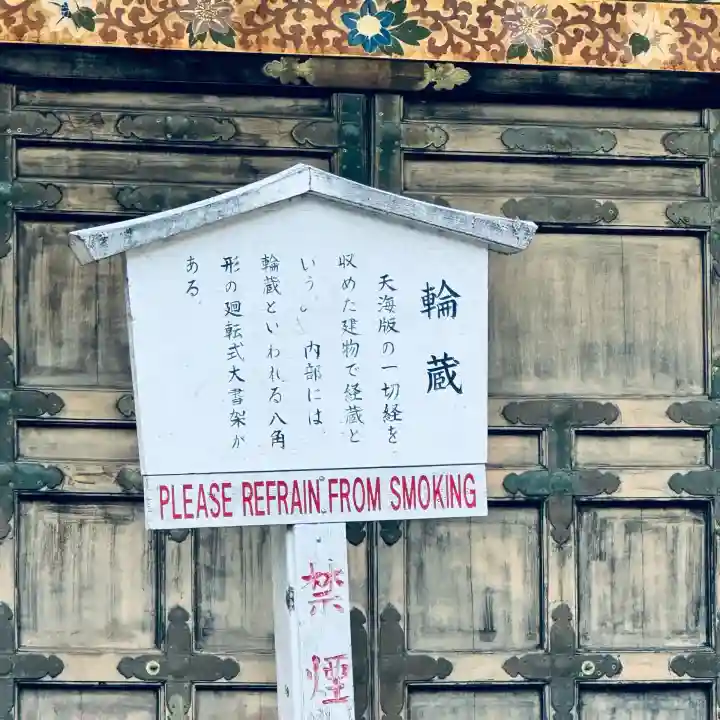 輪蔵
天海版の一切経を
収めた建物で経蔵と
いう 内部には
輪蔵といわれる八角
形の廻転式大書架が
ある
PLEASE REFRAIN FROM SMOKING
禁煙